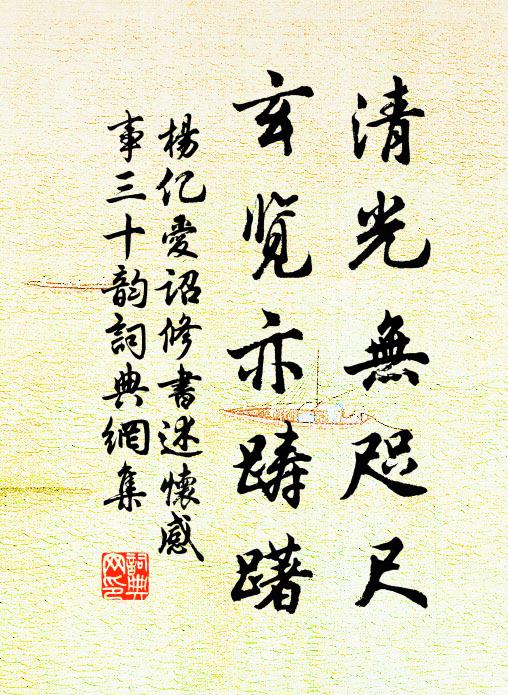 清光無咫尺
玄览亦踌躇
楊亿爱詔修書述懷感
事三十韵詞典網集
詞典
网印